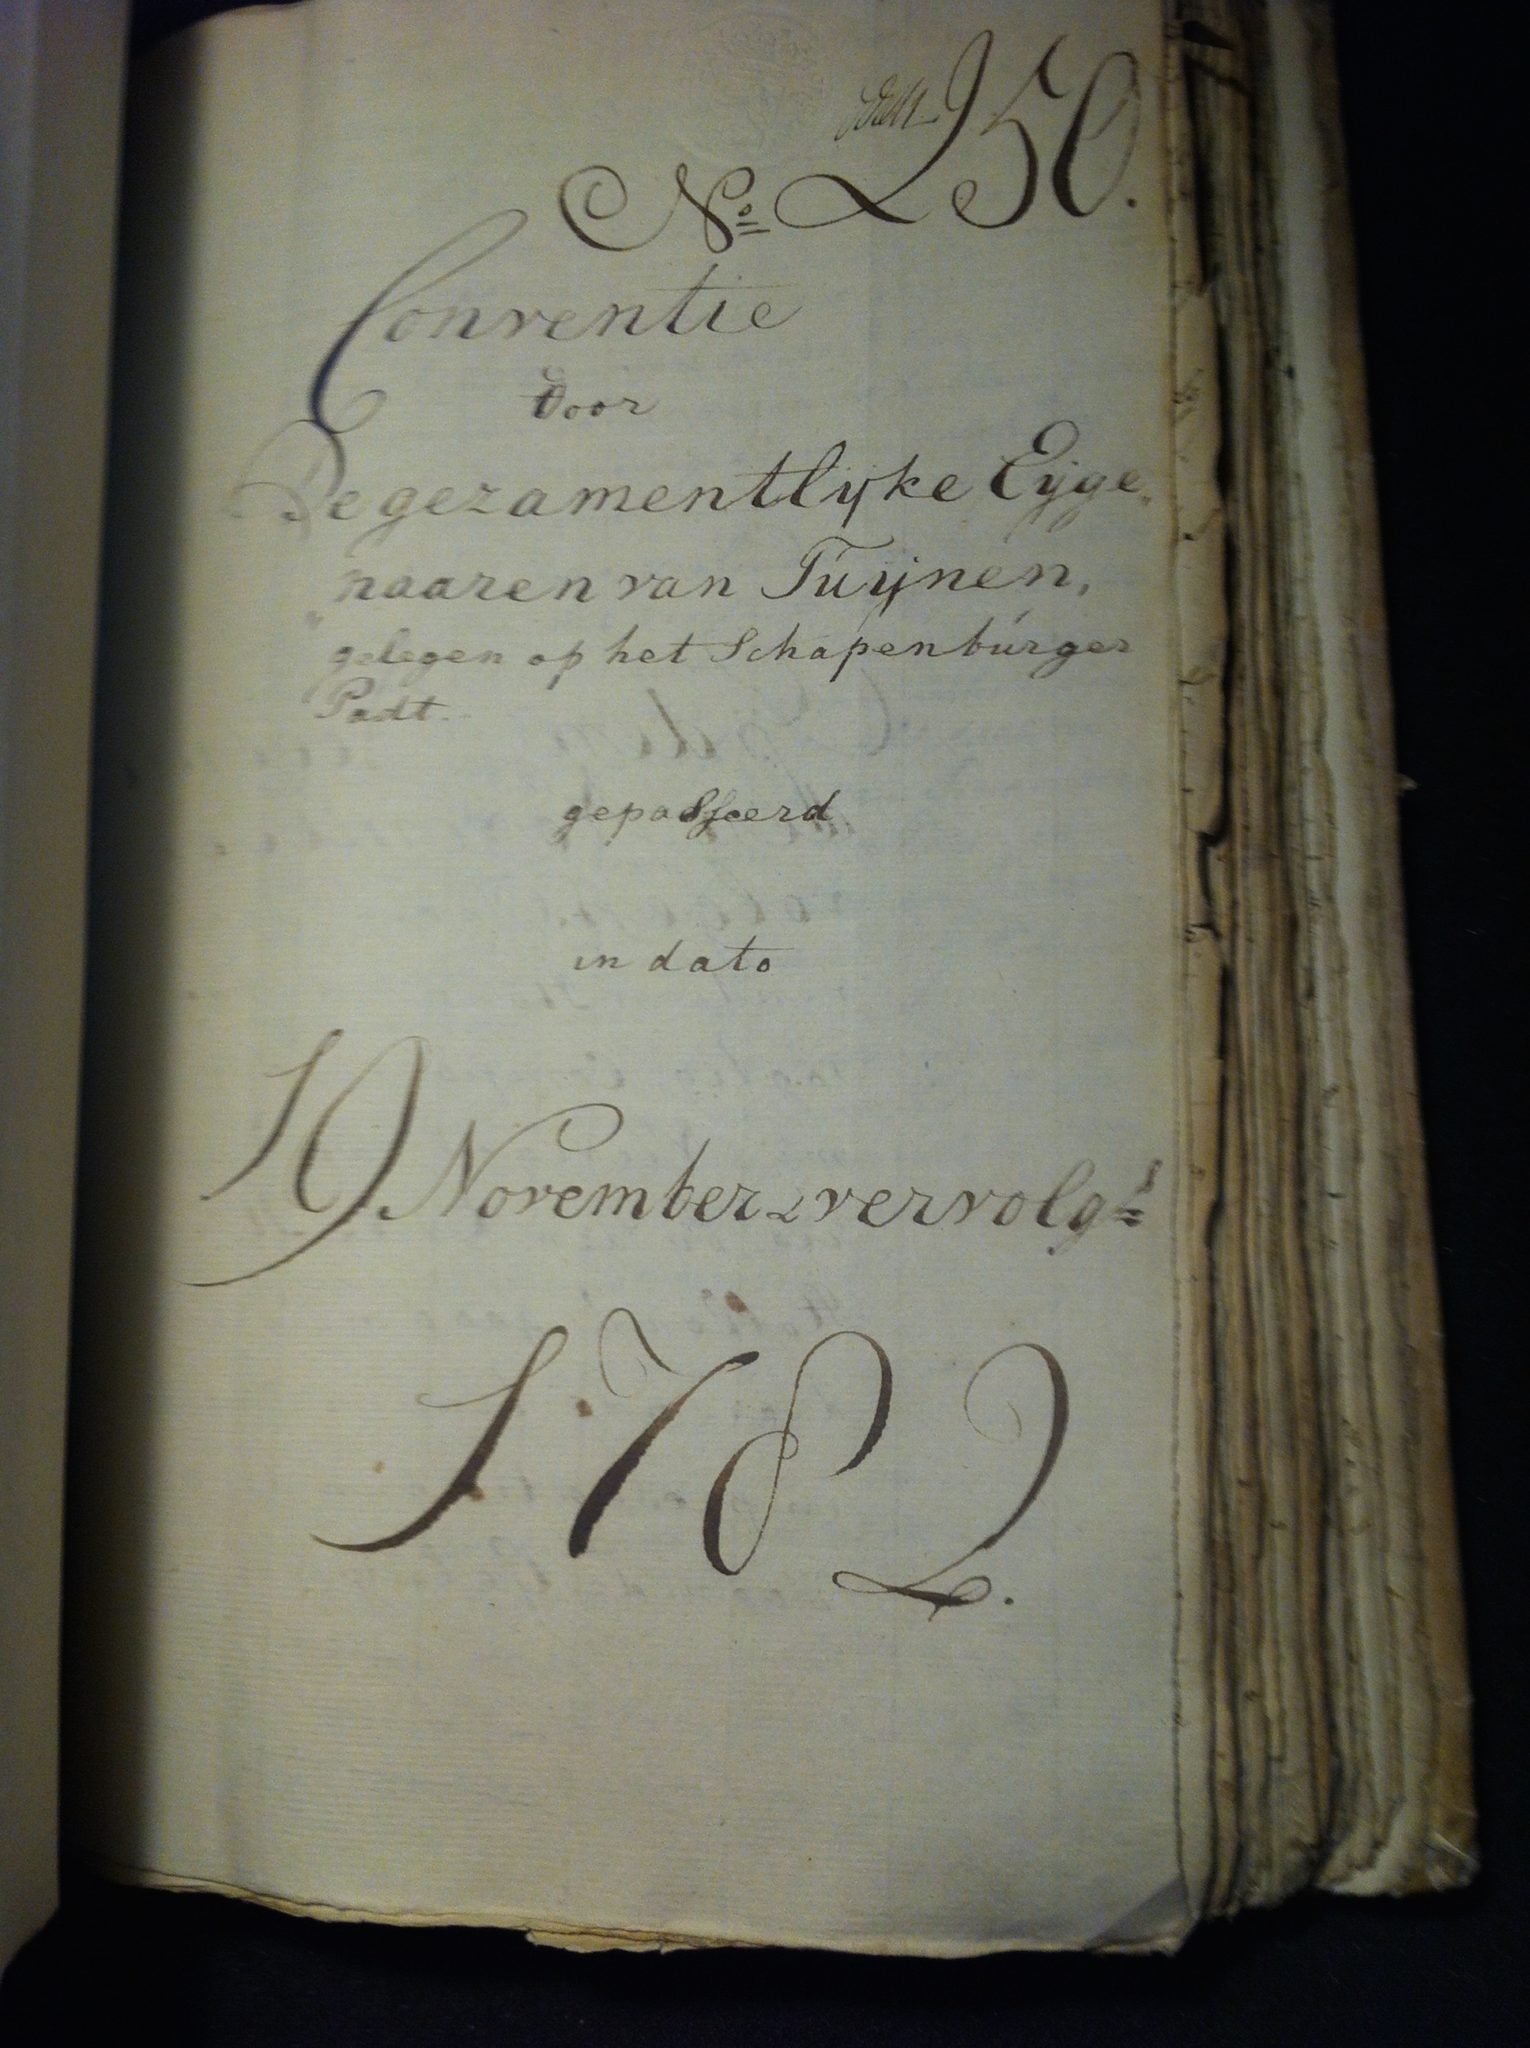 No. 250.
Conventie
door
De gezamentlyke Eyge„
„naaren van Tuijnen,
gelegen op het Schapenburger
Padt.
gepasseerd
in dato
19 November & vervolgs
1782.